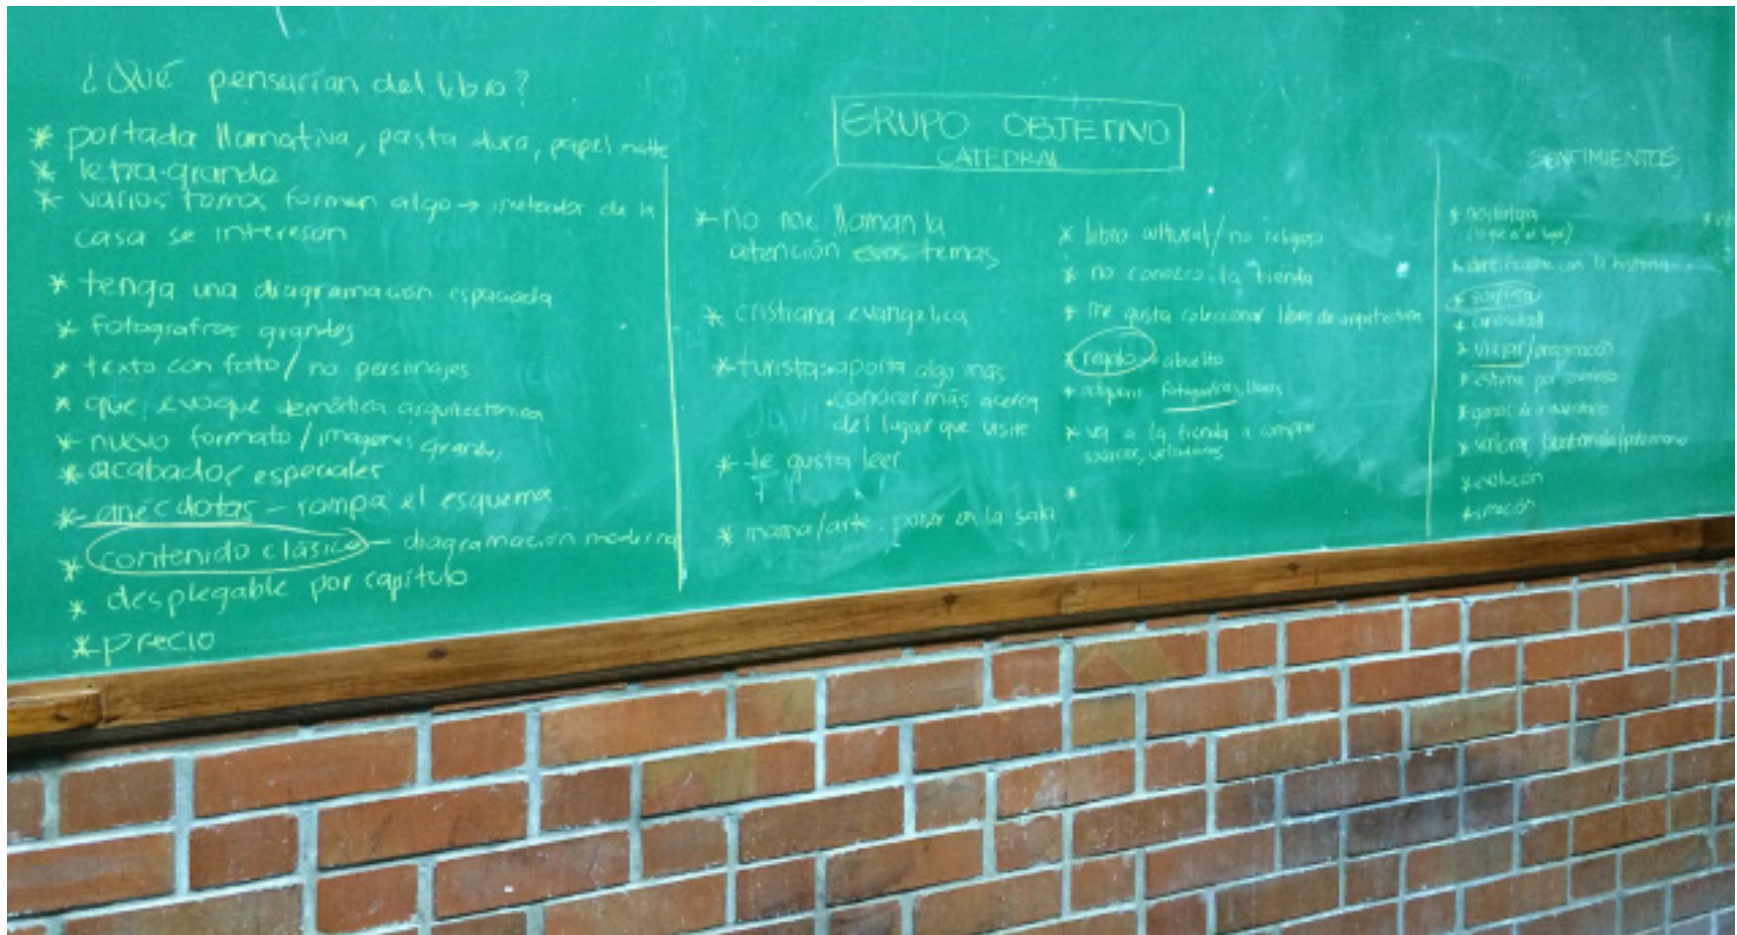 ¿Qué pensarían del libro?
* portada llamativa, pasta dura, papel matte
* letra grande
* varios tomos formen algo → de la
casa se interesan
* tenga una diagramación espaciada
* fotografías grandes
* texto con foto / no personajes
* que evoque temática arquitectónica
* nuevo formato / imagenes grandes
* acabados especiales
* anécdotas - rompa el esquema
* contenido clásico - diagramación moderna
* desplegable por capítulo
* precio
GRUPO OBJETIVO
CATEDRAL
* no me llaman la
atención esos temas
* cristiana evangelica
* turista aporta algo más
conocer más acerca
del lugar que visite
* te gusta leer
* mama/arte poner en la sala
* libro cultural / no religioso
* no conozco la tienda
* me gusta coleccionar libros de arquitectura
* regalo → abuelito
* adquirir fotografías, libros
* va a la tienda a comprar
*
SENTIMIENTOS
* nostalgia
* con la historia
* sorpresa
* curiosidad
* viajar/imaginación
* estima por
* ganas de
* valorar Guatemala/patrimonio
* evolución